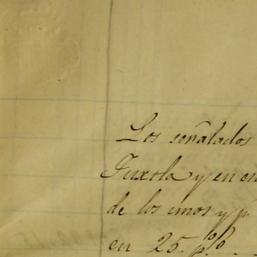 Los señalados
y en
de los unos y
en 25 p.º